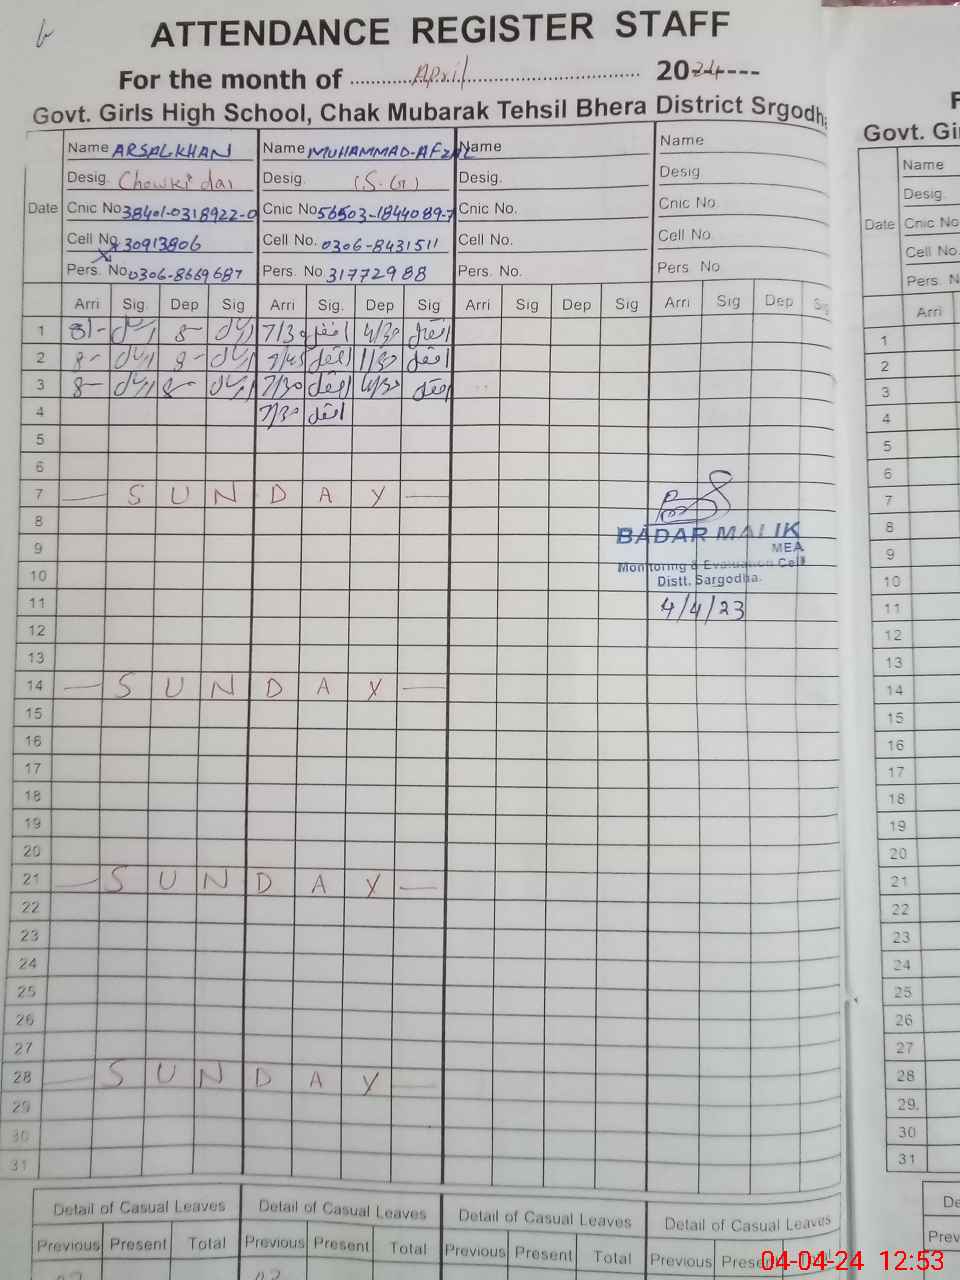 ATTENDANCE REGISTER STAFF
For the month of April 2024
Govt. Girls High School, Chak Mubarak Tehsil Bhera District Srgodha
Name ARSALKHAN Name MUHAMMAD-AFZAL Name Name
Desig. Chowki dar Desig. (S.G) Desig. Desig
Date Cnic No 38401-0318922-0 Cnic No 56503-1844089-7 Cnic No. Cnic No
Cell No 30913806 Cell No. 0306-8431511 Cell No. Cell No.
Pers. No 0306-8669687 Pers. No 31772988 Pers. No. Pers No
Arri Sig. Dep Sig Arri Sig. Dep Sig Arri Sig Dep Sig Arri Sig Dep Sig
1 8- 8- 7/30 افضل 4/30 افضل
2 8- 8- 7/45 افضل 1/30 افضل
3 8- 8- 7/30 افضل 4/30 افضل
4 7/30 افضل
5
6
7 SUNDAY
8
9
10
11
12
13
14 SUNDAY
15
16
17
18
19
20
21 SUNDAY
22
23
24
25
26
27
28 SUNDAY
29
30
31
BADAR MALIK
MEA
Monitoring & Evaluation Cell
Distt. Sargodha.
4/4/23
Detail of Casual Leaves Detail of Casual Leaves Detail of Casual Leaves Detail of Casual Leaves
Previous Present Total Previous Present Total Previous Present Total Previous Present
Govt. Gi
Name
Desig.
Date Cnic No
Cell No.
Pers. N
Arri
1
2
3
4
5
6
7
8
9
10
11
12
13
14
15
16
17
18
19
20
21
22
23
24
25
26
27
28
29.
30
31
De
Prev
04-04-24 12:53